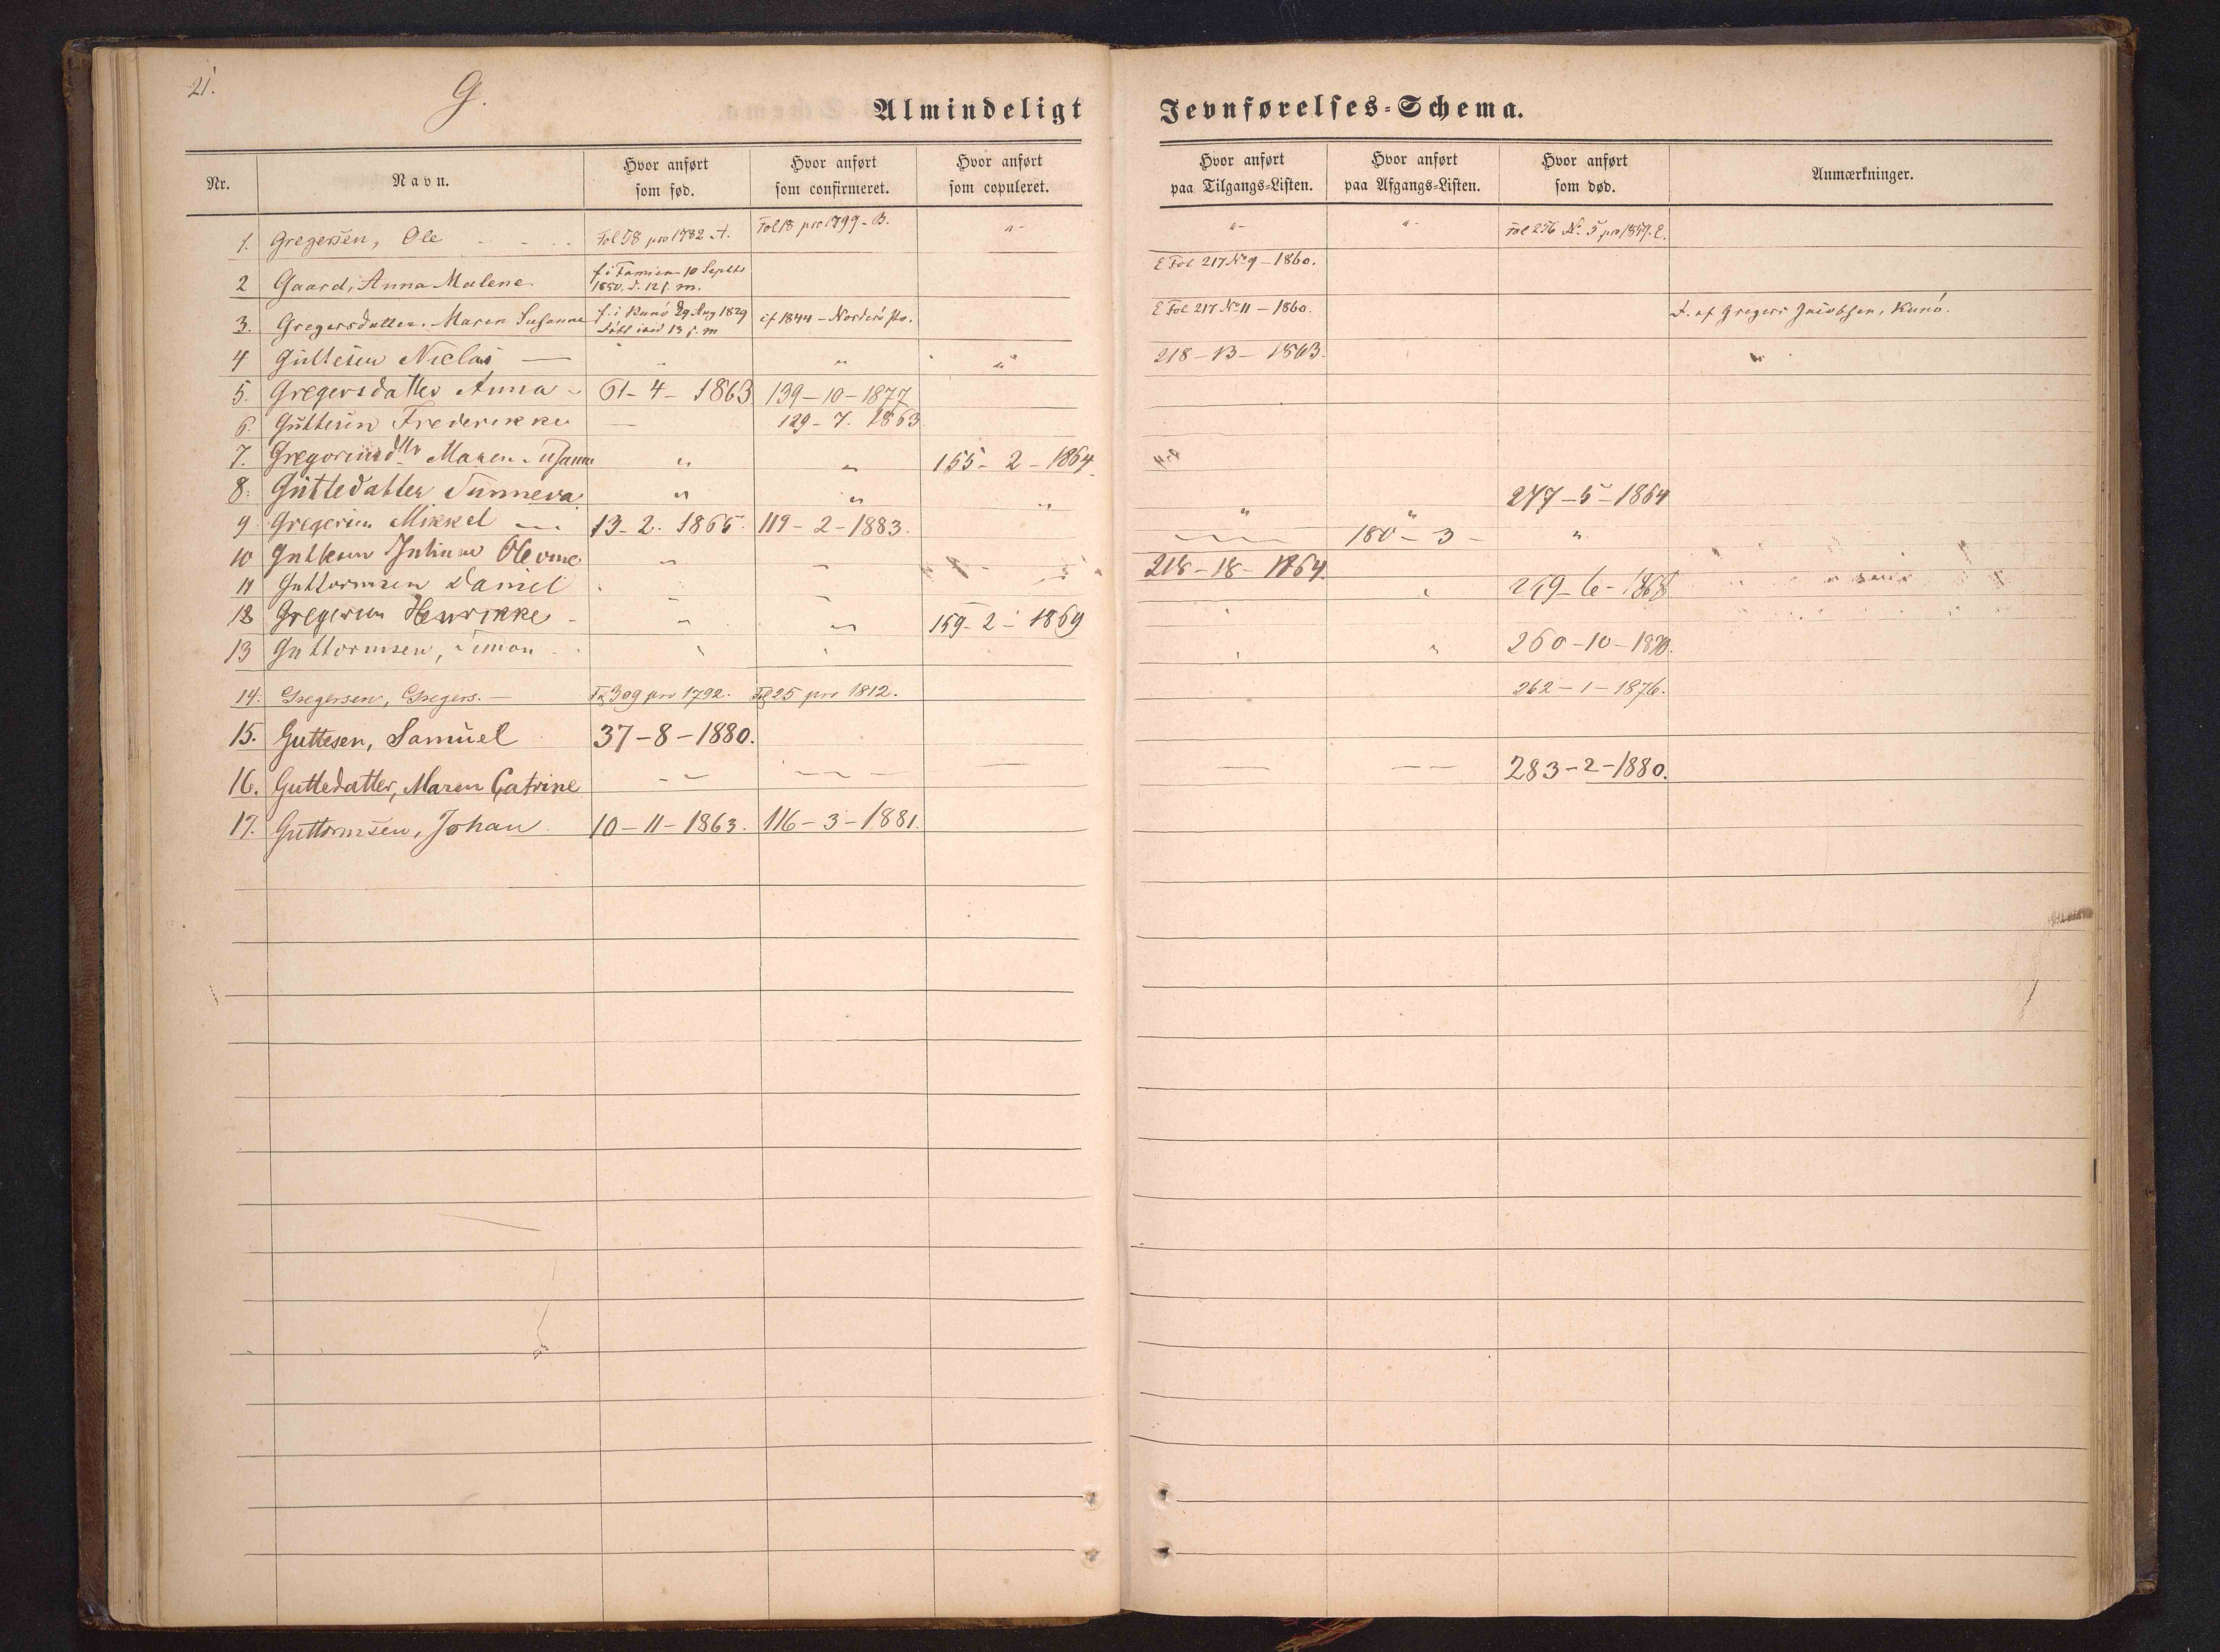 21.
G.
Almindeligt Jevnførelses-Schema.
Nr. Navn. Hvor anført som fød. Hvor anført som confirmeret. Hvor anført som copuleret. Hvor anført paa Tilgangs-Listen. Hvor anført paa Afgangs-Listen. Hvor anført som død. Anmærkninger.
1. Gregersen, Ole - - - Fol 58 pro 1782 A. Fol 18 pro 1799 - B. "- "- "- Fol 256 No. 5 pro 1859. E.
2 Gaard, Anna Malene. f. i Famien 10 Septbr 1850. d. 12 f. m. E Fol 217 No 9 - 1860.
3. Gregersdatter. Maren Susanne f. i Kunö 29 Aug 1829 döbt ibid 13 f. m cf 1844 - Norderö Pr. E Fol 217 No 11 - 1860. D. af Gregers Jacobsen, Kunö.
4 Guttesen Niclas — " " " 218 - 13 - 1863.
5. Gregersdatter Anna - 61 - 4 - 1863 139 - 10 - 1877
6. Guttesen Frederikke — 129 - 7. 1863.
7. Maren Susanna " " 155 - 2 - 1864
8. Guttedatter Sunneva " " " " " 247 - 5 - 1864
9. Gregersen Mikkel — 13 - 2. 1865. 119 - 2 - 1883. — 180 - 3 - "
10 " " 218 - 18 - 1864.
11 Guttormsen Daniel " " " 249 - 6 - 1868
12 Gregersen Henrikke - " " 159 - 2 - 1869
13 Guttormsen, Simon " " " " 260 - 10 - 1870.
14. Gregersen, Gregers. — Fol 309 pro 1792. Fol 25 pro 1812. 262 - 1 - 1876.
15. Guttesen, Samuel 37 - 8 - 1880.
16. Guttedatter, Maren Catrine — — — — — — — — 283 - 2 - 1880.
17. Guttormsen, Johan 10 - 11 - 1863. 116 - 3 - 1881.